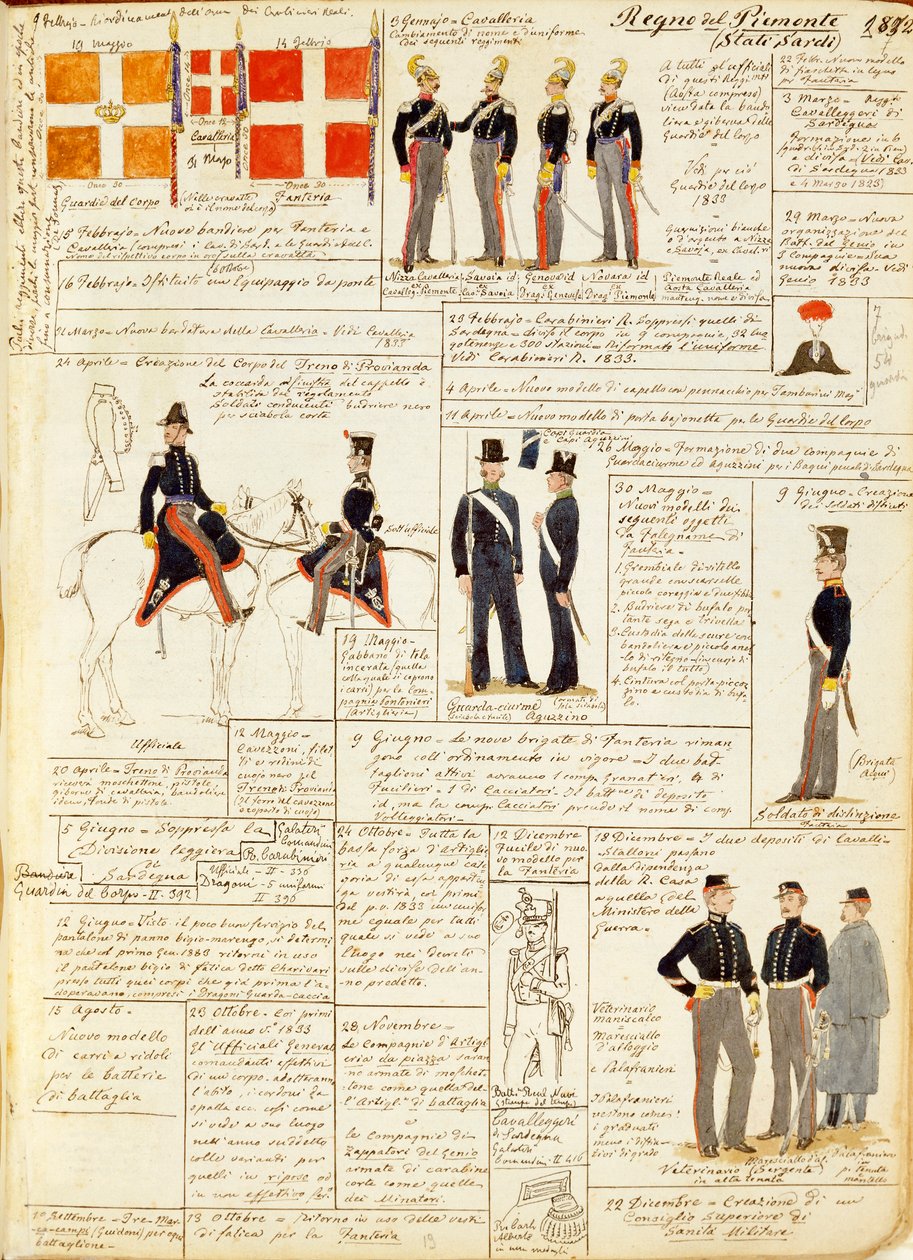 Regno del Piemonte
(Stati Sardi)
1832
9 Febbrajo - Riordinamento dell'Arma dei Carabinieri Reali.
19 Maggio
14 Febbrajo
Once 12
Cavalleria
31 Mago
Once 30
Once 30
Guardie del Corpo
(Nelle cravatte
vi è il nome del corpo)
Fanteria
15 Febbrajo - Nuove bandiere per Fanteria e
Cavalleria (compresi i Cav. di Sard. e le Guardie del C.
Nome del rispettivo corpo in oro sulla cravatta)
16 Febbrajo = Istituito un Equipaggio da ponte
21 Marzo = Nuova bardatura della Cavalleria = Vedi Cavalleria
1833
3 Gennajo = Cavalleria
Cambiamento di nome e d'uniforme
dei seguenti regimenti
Nizza Cavalleria
ex
Cavallegg. Piemonte
Savoia id
ex
Cav. Savoia
Genova id
ex
Drag. Genevese
Novara id
ex
Drag. Piemonte
A tutti gl'ufficiali
di questi Regg.
(Aosta compreso)
vien data la bando-
liera e giberna delle
Guardie del Corpo
Vedi per ciò
Guardie del Corpo
1833
Guarnizioni bianche
o d'argento a Nizza
e Savoia, ex Cavall.
Piemonte Reale ed
Aosta Cavalleria
manteng. nome e divisa
22 Febr. Nuovo modello
di fiaschetta in legno per
Fanteria
3 Marzo = Regg.
Cavalleggeri di
Sardegna
Formazione in 6
e divisa = Vedi Cav.
di Sardegna 1833
e 4 Marzo 1823)
29 Marzo = Nuova
organizzazione del
Batt. del Genio in
Compagnie = Sua
nuova divisa = Vedi
Genio 1833
23 Febbrajo = Carabinieri R. Soppressi quelli di
Sardegna = diviso il corpo in 9 compagnie, 32 luo
gotenenze e 300 stazioni = Riformato l'uniforme
Vedi Carabinieri R. 1833.
4 Aprile = Nuovo modello di cappello con pennacchio per Tamburini Mag.
11 Aprile = Nuovo modello di porta bajonetta per le Guardie del Corpo
24 Aprile = Creazione del Corpo del Treno di Provianda
La coccarda a sinistra del cappello è
stabilita dal regolamento
Soldati conducenti budriere nero
per sciabola corta
Sott'ufficiale
Ufficiale
Capi Guardia
e Capi Aguzzini
26 Maggio = Formazione di due compagnie di
Guardaciurme ed Aguzzini per i Bagni penali di Sardegna
Guarda-ciurme
Aguzzino
30 Maggio =
Nuovi modelli dei
seguenti oggetti
da Falegname di
Fanteria =
1. Grembiale di vitello
grande con scarselle
piccola coreggia e due fibbie
2. Budriere di bufalo por
tante sega e trivella
3. Custodia della scure con
bandoliera e piccolo anel-
lo di ritegno (in cuojo di
bufalo il tutto)
4. Cintura col porta-piccoz
zino e custodia di bufa-
lo.
9 Giugno = Creazione
dei Soldati distinti
(Brigata
Acqui)
Soldato di distinzione
Fanteria
19 Maggio -
Gabbano di tela
incerata (quella
colla quale si coprono
i carri) per la Com-
pagnia Pontonieri
(Artiglieria)
12 Maggio =
Cavezzoni, filet
ti e redini di
cuojo nero pel
Treno di Provianda
(I ferri del cavezzone
coperto di cuojo)
20 Aprile = Treno di Provianda
riceverà moschettone, pistole,
giberne di cavalleria, bandoliere
idem, fonde di pistole.
9 Giugno = Le nove brigate di Fanteria riman
gono coll'ordinamento in vigore = I due bat
taglioni attivi avranno 1 comp. Granatieri, 4 di
Fucilieri = 1 di Cacciatori. Il batt.ne di deposito
id, ma la comp. Cacciatori prende il nome di comp.
Volteggiatori.
5 Giugno = Soppressa la
Divisione leggiera
di
Sardegna
Galateri
Comandin
B. Carabinieri
Ufficiale - II - 336
Dragoni - 5 uniformi
II 390
Bandiera
Guardia del Corpo - II - 392
12 Giugno = Visto il poco buon servizio del
pantalone di panno bigio-marengo, si determi
na che col primo Gen. 1833 ritorni in uso
il pantalone bigio di fatica detto Charivari
presso tutti quei corpi che già prima l'a-
doperavano, compresi i Dragoni Guarda-caccia
15 Agosto =
Nuovo modello
di carri a ridoli
per le batterie
di battaglia
23 Ottobre = Coi primi
dell'anno v.º 1833
Gl'Ufficiali Generali
comandanti effettivi
di un corpo adotteranno
l'abito, i cordoni la
spalla ecc. così come
si vede a suo luogo
nell'anno suddetto
colle varianti per
quelli in riposo od
in non effettivo ser.
24 Ottobre = Tutta la
bassa forza d'Artiglie
ria a qualunque cate
goria di essa apparten
ga vestirà coi primi
del p.v. 1833 un'unifor
me eguale per tutti
quale si vede a suo
luogo nei decreti
sulle divise dell'an
no predetto.
28 Novembre =
Le Compagnie d'Artigl
eria da piazza saran
no armate di moschet-
tone come quelle del-
l'Artigl. di battaglia
e
le compagnie di
Zappatori del Genio
armate di carabine
corte come quelle
dei Minatori.
12 Dicembre
Fucile di nuo
vo modello per
la Fanteria
Cavalleggeri
di Sardegna
Galateri
Comandin - II 416
18 Dicembre = I due depositi di Cavalli-
Stalloni passano
dalla dipendenza
della R. Casa
a quella del
Ministero della
Guerra.
Veterinario
maniscalco
=
Maresciallo
d'alloggio
e Palafranieri
=
I Palafranieri
vestono come
i graduati
meno i distin-
tivi di grado
Veterinario
Maresciallo d'al.
(Sergente)
in alta tenuta
Palafraniere
in p. tenuta
mantello
22 Dicembre = Creazione di un
Consiglio Superiore di
Sanità Militare
10 Settembre = Tre Mar-
ca-campi (Guidoni) per ogni
battaglione =
13 Ottobre = Ritorno in uso delle vesti
di fatica per la Fanteria
19